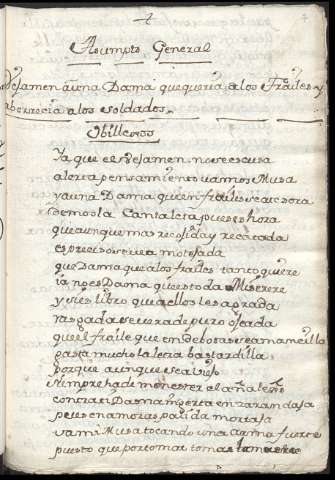 Asumpto General
Vejamen a una Dama que queria a los Frailes y
aborrecia a los soldados.
Ovillejos
Ya que el Vejamen no se escusa
alerta pensamiento vamos Musa
y a una Dama que en frailes
demosla Cantaleta pues es hora
que aunque mas recojida y recatada
es preciso se vea motejada
que Dama que a los frailes tanto quiere
ia no es Dama que es toda Miserere
y si es libro que a ellos les agrada
raspada se vera de puro ojeada
que el fraile que en devotas se amancilla
gasta mucho la letra bastardilla
porque aunque sea
siempre ha de menester al año
contra ti Dama injerta en zarandaja
pues enamoras palida mortaja
va mi Musa tocando una
puesto que por tomar tomas